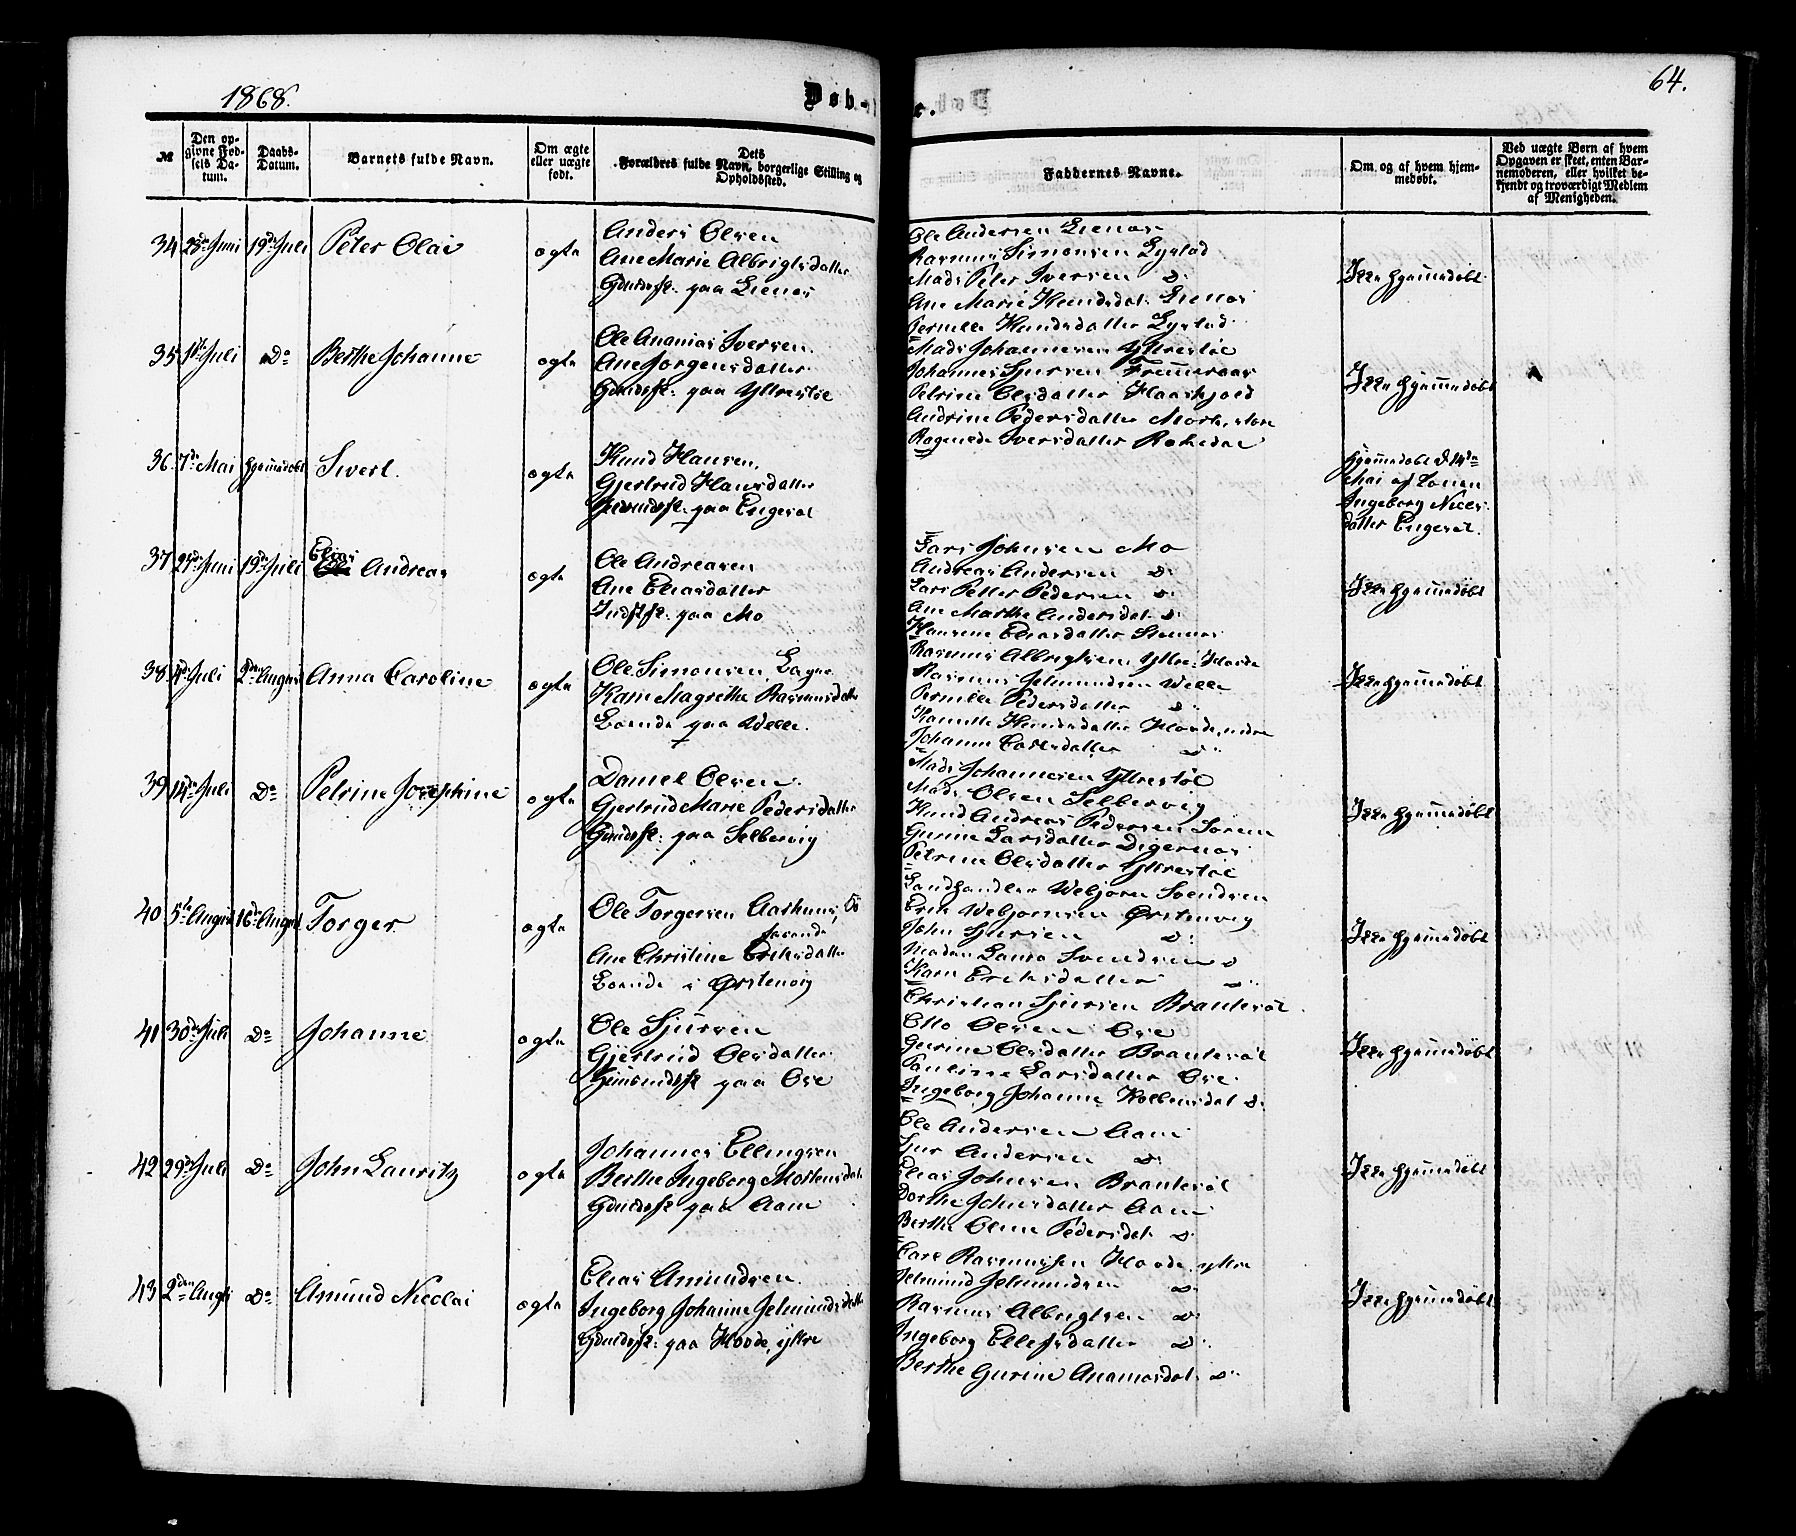 1868.
Døb-
e.
64.
№
Den op-
givne Fød-
sels Da-
tum.
Daabs-
Datum.
Barnets fulde Navn.
Om ægte
eller uægte
født.
Dets
Forældres fulde Navn, borgerlige Stilling og
Opholdssted.
Faddernes Navne.
Om og af hvem hjem-
medøbt.
Ved uægte Børn af hvem
Opgaven er skeet, enten Bar-
nemoderen, eller hvilket be-
kjendt og troværdigt Medlem
af Menigheden.
34 28de Juni 19de Juli Peter Olai ægte
Anders Olsen
Ane Marie Albrigtsdatter
Gdmdsf: paa Lienæs
Ole Andersen Lienæs
Rasmus Simonsen Lystad
Mads Peter Iversen D:
Ane Marie Knudsdat: Lienæs
Pernille Knudsdatter Lystad
Ikke hjemmedøbt
35 Juli Do Berthe Johanne ægte
Ole Ananias Iversen.
Ane Jørgensdatter
Gdmdsf: paa Yttrestøl
Mads Johannesen Yttrestøl
Johannes Sjursen
Petrine Olsdatter Haaskjold
Andrine Pedersdatter
Ragnede Iversdatter
Ikke hjemmedøbt
36. 7de Mai hjemmedøbt Sivert. ægte
Knud Hansen,
Gjertrud Hansdatter
paa Engeset
hjemmedøbt d 14de
Mai af Konen
Ingeborg Niels-
datter Engeset.
37 Juni 19de Juli Elias Andreas ægte
Ole Andreasen
Ane Eliasdatter
Indstsf: paa Mo
Lars Johnsen Mo
Andreas Andersen D:
Lars Petter Pedersen D:
Ane Marthe Andersdat: D:
Eliasdatter
Ikke hjemmedøbt
38 Juli 2den August Anna Caroline ægte
Ole Simonsen
Karn Magrethe Rasmusdatter
Boende paa Welle.
Rasmus Albrigtsen Yttre-Hovde
Rasmus Jetmundsen Welle
Pernille Pedersdatter D:
Knudsdatter Hovde, indre
Johanne D:
Ikke hjemmedøbt
39 14de Juli Do Petrine Josephine ægte
Daniel Olsen.
Gjertrud Marie Pedersdatter
Gdmdsf: paa Selbervig
Mads Johannesen Yttrestøl
Mads Olsen Selbervig
Knud Andreas Pedersen
Gurine Larsdatter Digernæs
Petrine Olsdatter Yttrestøl
Ikke hjemmedøbt
40. 5te August 16de August Torger ægte
Ole Torgersen
Ane Christine Eriksdatter
Boende i Ørstenvig
Landhandler Webjørn Svendsen
Erik Webjørnsen Ørstenvig
John Sjursen D:
Madam Laura Svendsen D
Karn Eriksdatter D:
Ikke hjemmedøbt
41 30de Juli Do Johanne ægte
Ole Sjursen
Gjertrud Olsdatter
paa Ose
Christian Sjursen Brautesæt
Otto Olsen Ose
Gurine Olsdatter Brautesæt
Pauline Larsdatter Ose.
Ingeborg Johanne Kolbensdat D:
Ikke hjemmedøbt
42 29de Juli Do John Lauritz ægte
Johannes Ellingsen
Berthe Ingeborg Mortensdat:
Gdmdsf: paa Aam
Ole Andersen Aam
Sjur Andersen D:
Elias Johnsen Brautesæt
Dorthe Johnsdatter Aam
Berthe Oline Pedersdat: D:
Ikke hjemmedøbt
43 2den Augst Do Amund Nicolai ægte
Elias Amundsen.
Ingeborg Johanne Jetmundsdatter
Gdmdsf: paa Hovde, yttre
Carl Rasmussen Hovde, yttre
Jetmund Jetmundsen D:
Rasmus Albrigtsen D:
Ingeborg Ellefsdatter D:
Berthe Gurine Ananiasdat: D:
Ikke hjemmedøbt